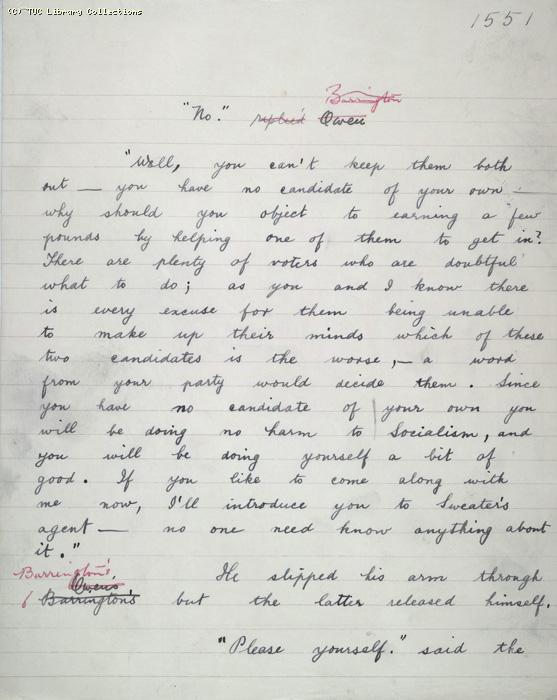 (c) TUC Library Collections
1551
Barrington
"No." replied Owen
"Well, you can't keep them both
out — you have no candidate of your own —
why should you object to earning a few
pounds by helping one of them to get in?
There are plenty of voters who are doubtful
what to do; as you and I know there
is every excuse for them being unable
to make up their minds which of these
two candidates is the worse, — a word
from your party would decide them. Since
you have no candidate of your own you
will be doing no harm to Socialism, and
you will be doing yourself a bit of
good. If you like to come along with
me now, I'll introduce you to Sweater's
agent — no one need know anything about
it."
Barrington's, He slipped his arm through
Owen's
Barrington's but the latter released himself.
"Please yourself." said the